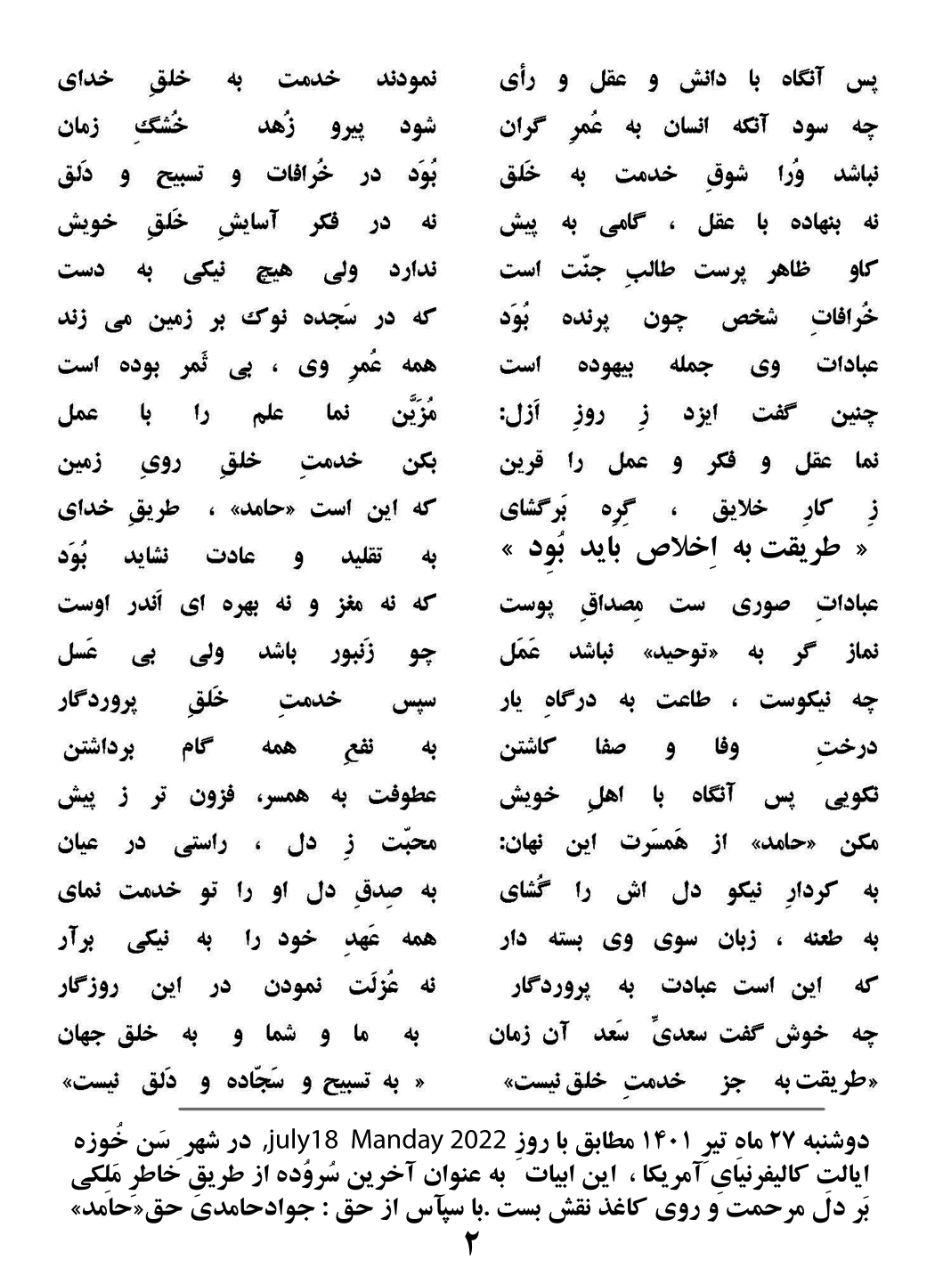 پس آنگاه با دانش و عقل و رأی نمودند خدمت به خلقِ خدای
چه سود آنکه انسان به عُمرِ گران شود پیرو زُهد خُشگ زمان
نباشد وُرا شوقِ خدمت به خَلق بُوَد در خُرافات و تسبیح و دَلق
نه بنهاده با عقل ، گامی به پیش نه در فکر آسایشِ خَلقِ خویش
کاو ظاهر پرست طالبِ جنّت است ندارد ولی هیچ نیکی به دست
خُرافاتِ شخص چون پرنده بُوَد که در سَجده نوک بر زمین می زند
عبادات وی جمله بیهوده است همه عُمرِ وی ، بی ثَمر بوده است
چنین گفت ایزد زِ روزِ اَزل: مُزَیَّن نما علم را با عمل
نما عقل و فکر و عمل را قرین بکن خدمتِ خلقِ رویِ زمین
زِ کارِ خلایق ، گِره بَرگشای که این است «حامد» ، طریقِ خدای
« طریقت به اِخلاص باید بُود » به تقلید و عادت نشاید بُوَد
عباداتِ صوری ست مِصداقِ پوست که نه مغز و نه بهره ای اَندر اوست
نماز گر به «توحید» نباشد عَمَل چو زَنبور باشد ولی بی عَسل
چه نیکوست ، طاعت به درگاهِ یار سپس خدمتِ خَلقِ پروردگار
درختِ وفا و صفا کاشتن به نفعِ همه گام برداشتن
نکویی پس آنگاه با اهلِ خویش عطوفت به همسر، فزون تر ز پیش
مکن «حامد» از هَمسَرت این نهان: محبّت زِ دل ، راستی در عیان
به کردارِ نیکو دل اش را گُشای به صِدقِ دل او را تو خدمت نمای
به طعنه ، زبان سوی وی بسته دار همه عَهدِ خود را به نیکی برآر
که این است عبادت به پروردگار نه عُزلَت نمودن در این روزگار
چه خوش گفت سعدیِّ سَعد آن زمان به ما و شما و به خلق جهان
«طریقت به جز خدمتِ خلق نیست» « به تسبیح و سَجّاده و دَلق نیست»
دوشنبه ۲۷ ماه تیرِ ۱۴۰۱ مطابق با روزِ july18 Manday 2022, در شهرِ سَن خُوزه
ایالت کالیفرنیایِ آمریکا ، این ابیات به عنوان آخرین سُروُده از طریقِ خاطرِ مَلِکی
بَر دلِ مرحمت و روی کاغذ نقش بست .با سپآس از حق : جوادحامدی حق«حامد»
۲